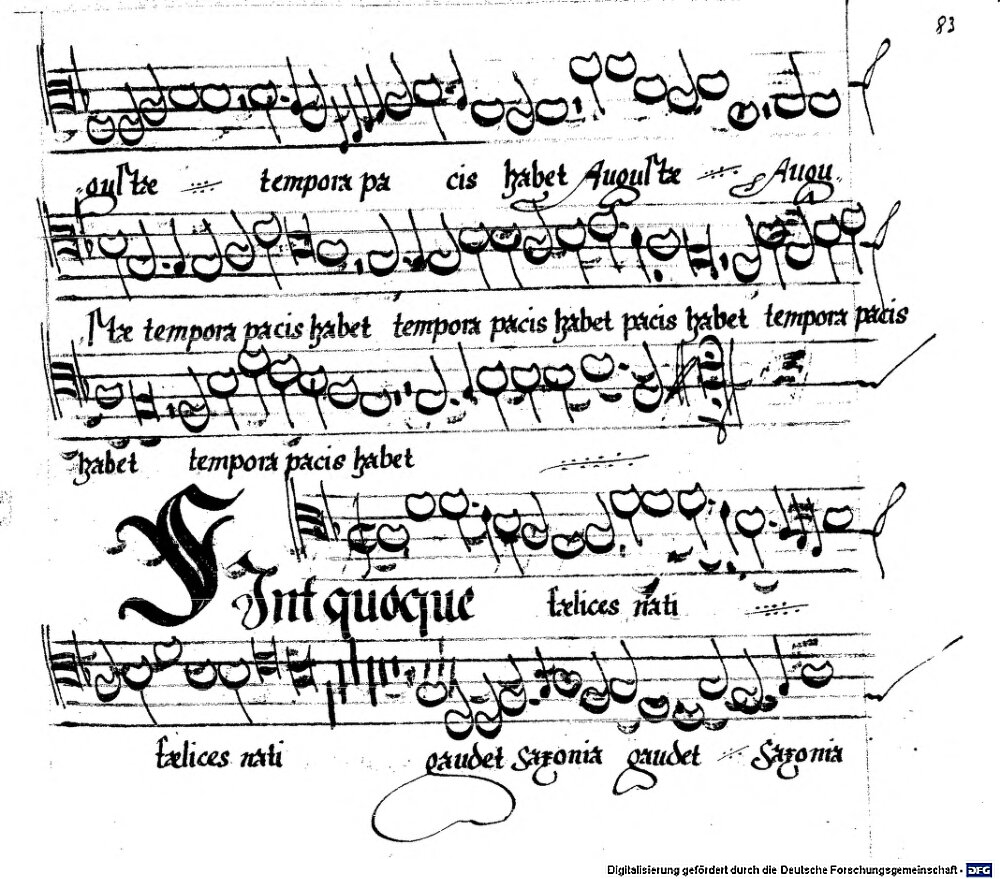 83
guſtæ tempora pa cis habet Auguſtæ Augu
ſtæ tempora pacis habet tempora pacis habet pacis habet tempora pacis
habet tempora pacis habet
Sint quoque fælices nati
fælices nati gaudet Saxonia gaudet Saxonia
Digitalisierung gefördert durch die Deutsche Forschungsgemeinschaft - DFG